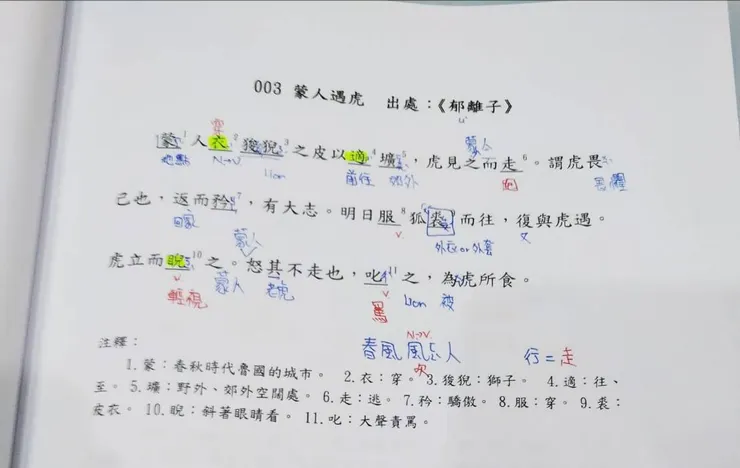 003 蒙人遇虎 出處：《郁離子》
穿 蒙人
蒙1人衣2狻猊3之皮以適4壙5，虎見之而走6。謂虎畏
地點 N→V Lion 前往 郊外 害怕
己也，返而矜7，有大志。明日服8狐裘9而往，復與虎遇。
回家 v 外衣or外套 又
蒙人
虎立而睨10之。怒其不走也，叱11之，為虎所食。
v 輕視 蒙人 老虎 v 罵 Lion 被
N→V
春風風人 行=走
吹
注釋：
1.蒙：春秋時代魯國的城市。 2.衣：穿。3.狻猊：獅子。 4.適：往、
至。5.壙：野外、郊外空闊處。 6.走：逃。7.矜：驕傲。8.服：穿。9.裘：
皮衣。10.睨：斜著眼睛看。11.叱：大聲責罵。